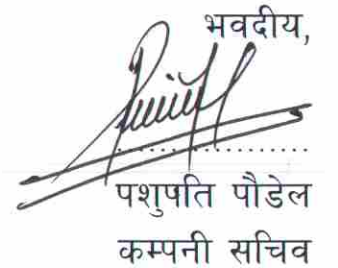 भवदीय,
....................
पशुपति पौडेल
कम्पनी सचिव